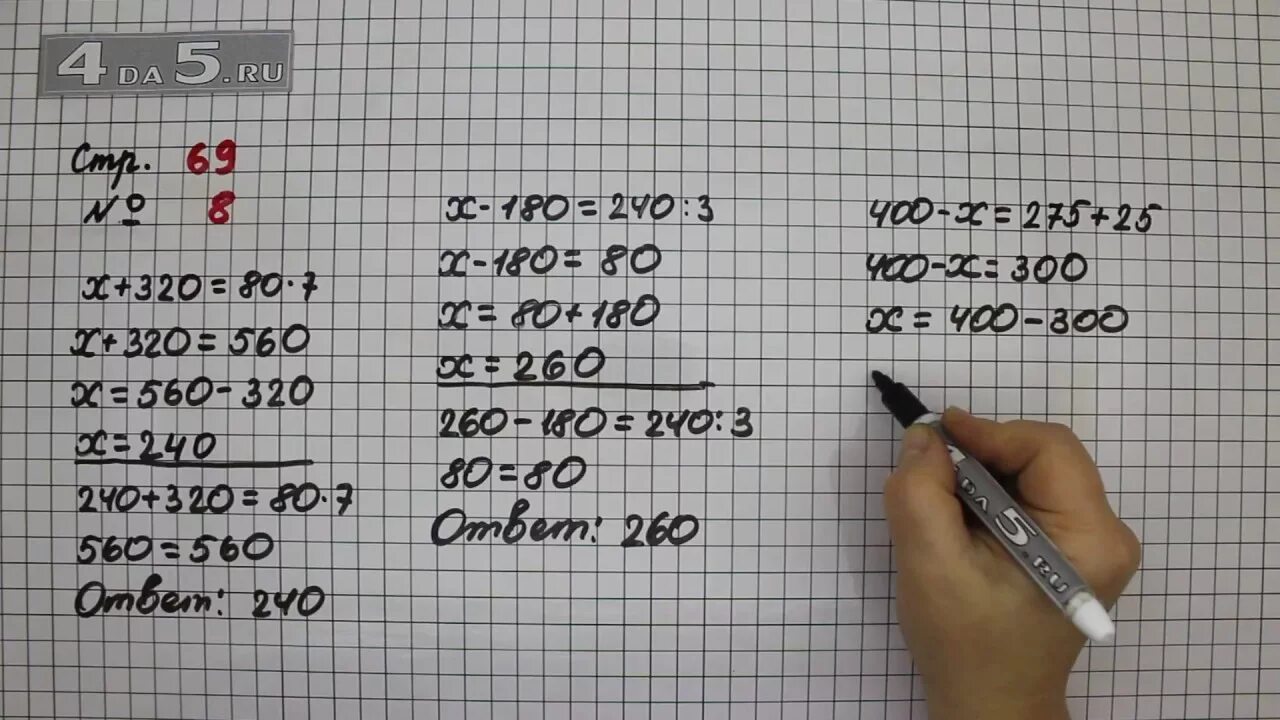 4DA5.RU
Стр. 69
№ 8
x+320=80·7
x+320=560
x=560-320
x=240
240+320=80·7
560=560
Ответ: 240
x-180=240:3
x-180=80
x=80+180
x=260
260-180=240:3
80=80
Ответ: 260
400-x=275+25
400-x=300
x=400-300
DA5.RU